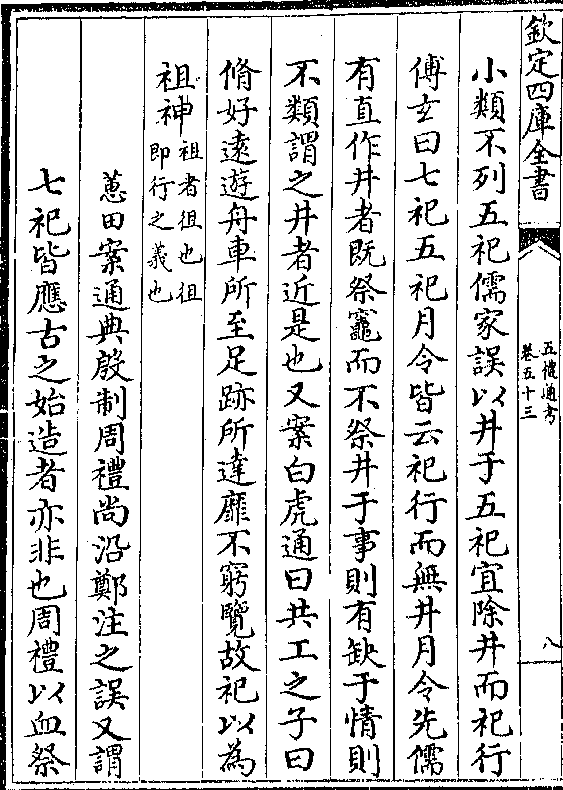 欽定四庫全書
五禮通考
卷五十三
八
小類不列五祀儒家誤以井于五祀宜除井而祀行
傅玄曰七祀五祀月令皆云祀行而無井月令先儒
有直作井者既祭竈而不祭井于事則有缺于情則
不類謂之井者近是也又案白虎通曰共工之子曰
脩好逺遊舟車所至足跡所達靡不窮覽故祀以為
祖神祖者徂也徂
即行之義也
蕙田案通典殷制周禮尚沿鄭注之誤又謂
七祀皆應古之始造者亦非也周禮以血祭